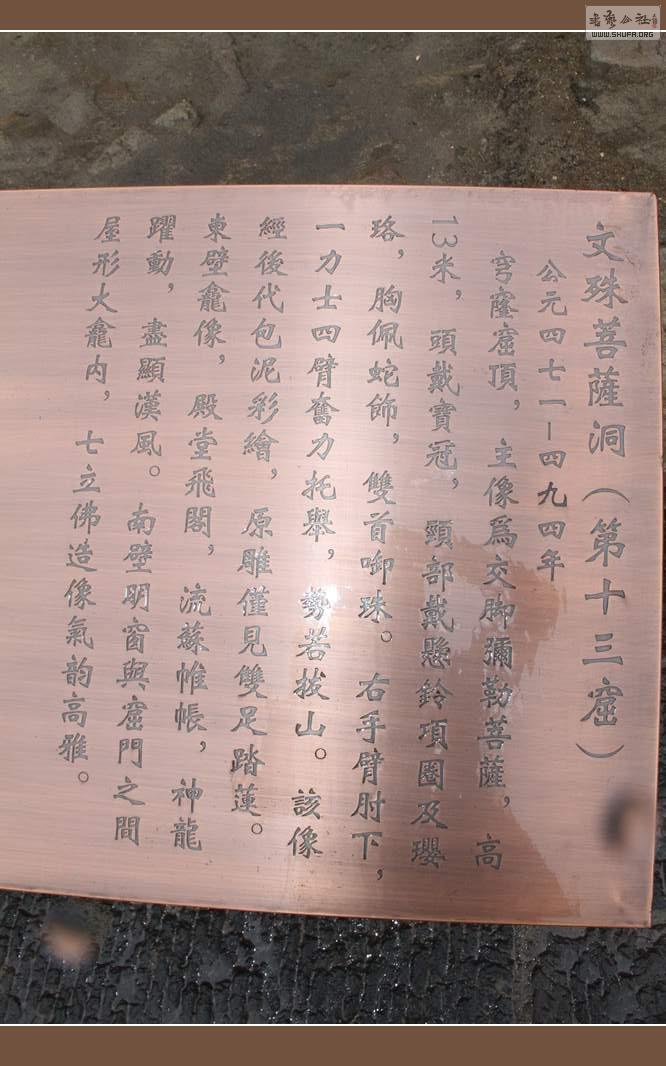 文殊菩薩洞（第十三窟）
公元四七一—四九四年
穹窿窟頂，主像爲交脚彌勒菩薩，高
13米，頭戴寶冠，頸部戴懸鈴項圈及瓔
珞，胸佩蛇飾，雙首啣珠。右手臂肘下，
一力士四臂奮力托舉，勢若拔山。該像
經後代包泥彩繪，原雕僅見雙足踏蓮。
東壁龕像，殿堂飛閣，流蘇帷帳，神龍
躍動，盡顯漢風。南壁明窗與窟門之間
屋形大龕内，七立佛造像氣韵高雅。
書藝公社
WWW.SHUFA.ORG